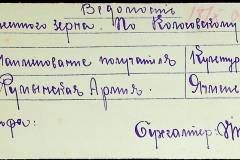 Ведомость
енного зерна. По Кологовскому
Наименование получателя Культур
Румынская Армия. Ячмен
Бухгалтер